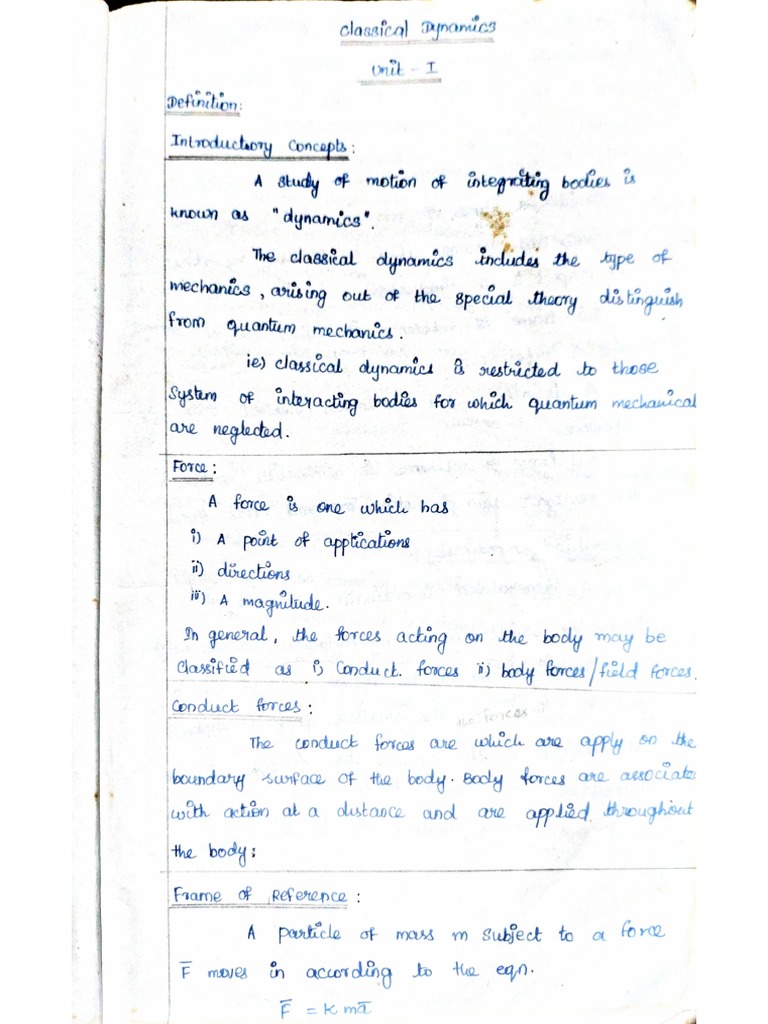 Classical Dynamics
Unit - I
Definition:
Introductory Concepts:
A study of motion of integrating bodies is
known as "dynamics".
The classical dynamics includes the type of
mechanics, arising out of the special theory distinguish
from quantum mechanics.
ie) classical dynamics is restricted to those
System of interacting bodies for which quantum mechanical
are neglected.
Force:
A force is one which has
i) A point of applications
ii) directions
iii) A magnitude.
In general, the forces acting on the body may be
Classified as i) Conduct. forces ii) body forces/field forces.
Conduct forces:
The conduct forces are which are apply on the
boundary surface of the body. Body forces are associate
with action at a distance and are applied throughout
the body:
Frame of Reference:
A particle of mass m subject to a force
F̅ moves in according to the eqn.
F̅ = K ma̅